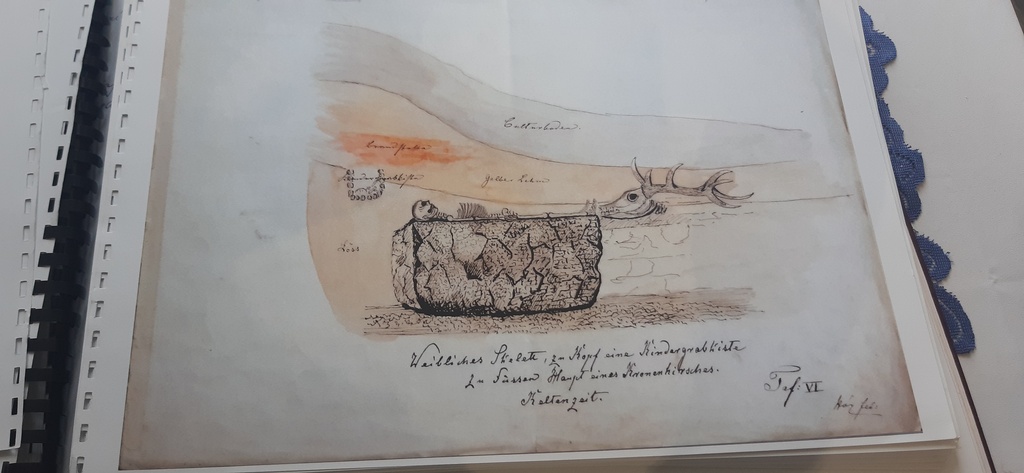 Culturboden.
Brandstelle
Kindergrabkiste
Gelber Lehm
Löss
Weibliches Skelett, zu Kopf eine Kindergrabkiste
Zu Füssen Haupt eines Kronenhirsches.
Keltenzeit.
Taf: VI